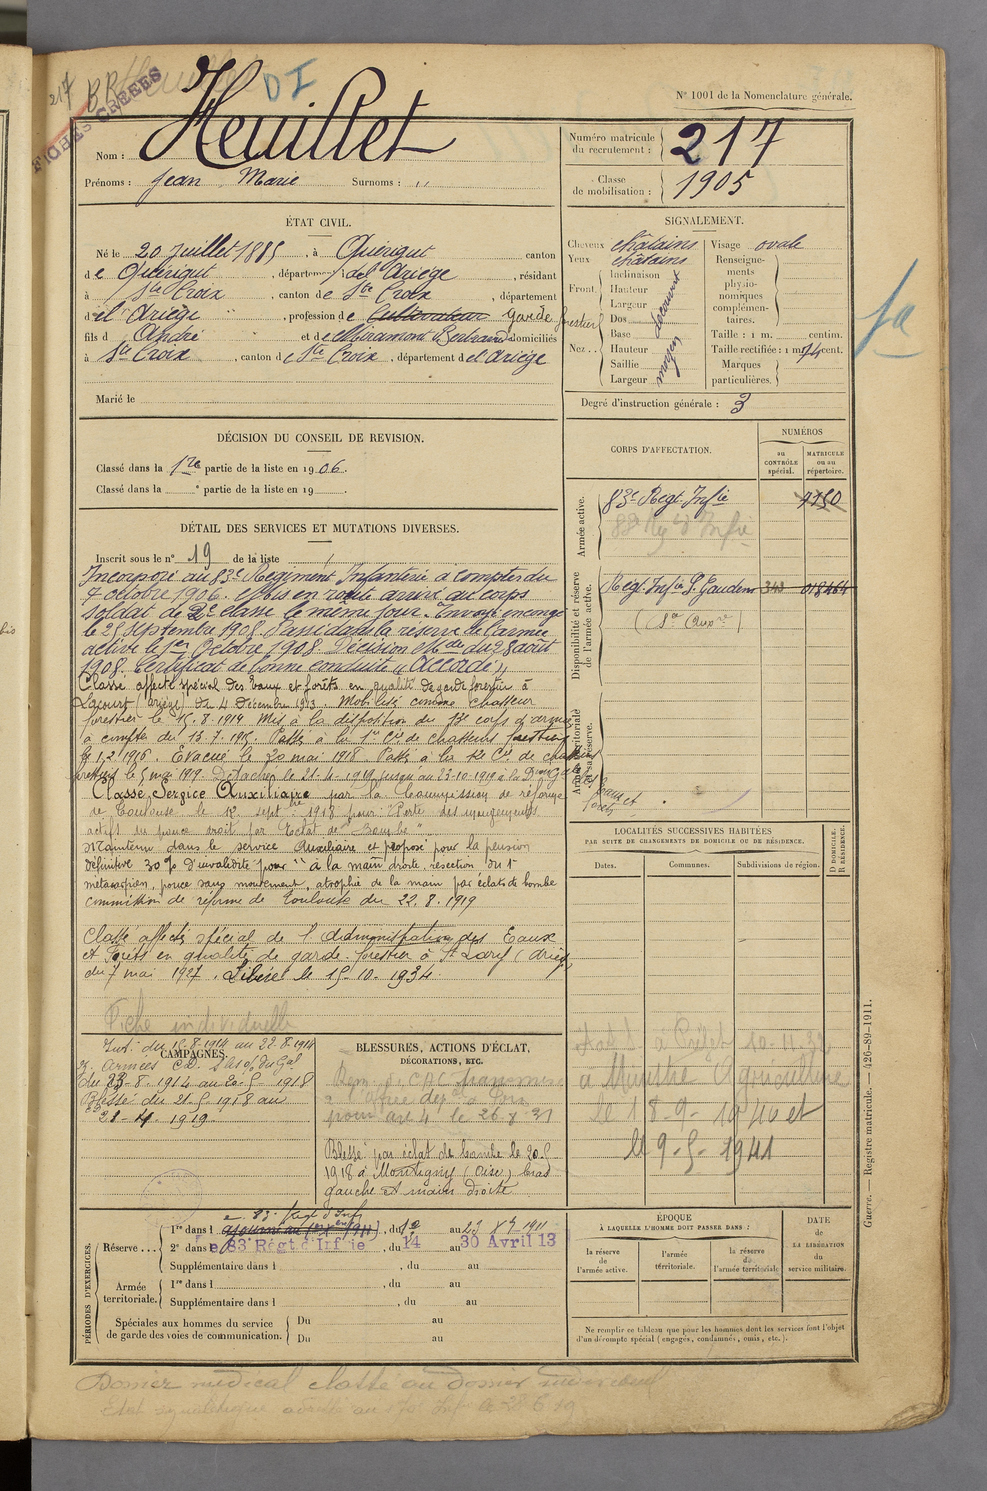 217 BR
DI
FICHES CRÉÉES
N° 1001 de la Nomenclature générale.
Nom : Heuillet
Prénoms : Jean Marie Surnoms : ,,
Numéro matricule du recrutement : 217
Classe de mobilisation : 1905
ÉTAT CIVIL.
Né le 20 Juillet 1885, à Quérigut canton
de Quérigut, département del Ariège, résidant
à Ste Croix, canton de Ste Croix, département
d'el Ariège, profession de Cultivateur Garde forestier
fils d André et de Miramont Bertrande domiciliés
à Ste Croix, canton de Ste Croix, département del Ariège
Marié le
SIGNALEMENT.
Cheveux châtains
Yeux châtains
Front. Inclinaison
Hauteur
Largeur
découvert
Nez.. Dos
Base
Hauteur
Saillie
Largeur
moyen
Visage ovale
Renseignements physionomiques complémentaires.
Taille : 1 m. centim.
Taille rectifiée : 1 m. 74 cent.
Marques particulières.
Degré d'instruction générale : 3
DÉCISION DU CONSEIL DE REVISION.
Classé dans la 1re partie de la liste en 1906.
Classé dans la ° partie de la liste en 19
CORPS D'AFFECTATION.
NUMÉROS
au CONTRÔLE spécial.
MATRICULE ou au répertoire.
Armée active.
83e Regt Infie 7130
Disponibilité et réserve de l'armée active.
Regt Infie St Gaudens 343 018464
Armée territoriale et sa réserve.
DÉTAIL DES SERVICES ET MUTATIONS DIVERSES.
Inscrit sous le n° 19 de la liste
Incorporé au 83e Régiment Infanterie à compter du
7 octobre 1906. Mis en route arrivé au corps
soldat de 2e classe le même jour. Envoyé en congé
le 25 Septembre 1908. Passé dans la réserve de l'armée
active le 1er Octobre 1908. Décision Mlle du 28 août
1908. Certificat de bonne conduite "Accordé"
Classé affecté spécial des Eaux et forêts en qualité de garde forestier à
Lacourt (Ariège) du 4 Décembre 1913. Mobilisé comme chasseur
forestier le 15.8.1914 Mis à la disposition du 18e corps d'armée
à compter du 13.7.1915. Passé à la 1re Cie de chasseurs forestiers
le 1.2.1916. Evacué le 20 mai 1918 Passé à la 12e Cie de chasseurs
forestiers le 5 mai 1919. Détaché le 21-4-1919 jusqu'au 23-10-1919 à la Don Gale des Eaux et forêts
Classé Service Auxiliaire par la Commission de réforme
de Toulouse le 12 sept bre 1918 pour : "Perte des mouvements
actifs du pouce droit par Eclat de Bombe".
Maintenu dans le service Auxiliaire et proposé pour la pension
définitive 30% d'invalidité pour "à la main droite, résection du 1er
métacarpien, pouce sans mouvement, atrophie de la main par éclats de bombe
commission de réforme de Toulouse du 22.8.1919
Classé affecté spécial de l'administration des Eaux
et Forêts en qualité de garde forestier à St Lary (Ariège)
du 7 mai 1927. Libéré le 15-10-1934.
Fiche individuelle
LOCALITÉS SUCCESSIVES HABITÉES
PAR SUITE DE CHANGEMENTS DE DOMICILE OU DE RÉSIDENCE.
Dates.
Communes.
Subdivisions de région.
D. DOMICILE.
R. RÉSIDENCE.
10-11-32
à Ministre Agriculture
le 18-9-1940 et
le 9-5-1941
CAMPAGNES.
Int. du 15-8-1914 au 22-8-1914
du 23-8-1914 au 20-5-1918
Blessé du 21-5-1918 au
21-4-1919
BLESSURES, ACTIONS D'ÉCLAT,
DÉCORATIONS, ETC.
Blessé par éclat de bombe le 20-5
1918 à Montigny (Oise) bras
gauche et main droite
PÉRIODES D'EXERCICES.
Réserve...
1re dans l e 83e Regt d'Infie, du 1er au 23 1911
2e dans l e 83e Régt d'Inf ie, du 14 au 30 Avril 13
Supplémentaire dans l , du au
Armée territoriale.
1re dans l , du au
Supplémentaire dans l , du au
Spéciales aux hommes du service de garde des voies de communication.
Du au
Du au
ÉPOQUE
À LAQUELLE L'HOMME DOIT PASSER DANS :
la réserve de l'armée active.
l'armée territoriale.
la réserve de l'armée territoriale.
DATE de LA LIBÉRATION du service militaire.
Ne remplir ce tableau que pour les hommes dont les services font l'objet
d'un décompte spécial (engagés, condamnés, omis, etc.).
Guerre. — Registre matricule. — 426-89-1911.
Dossier médical classé au dossier